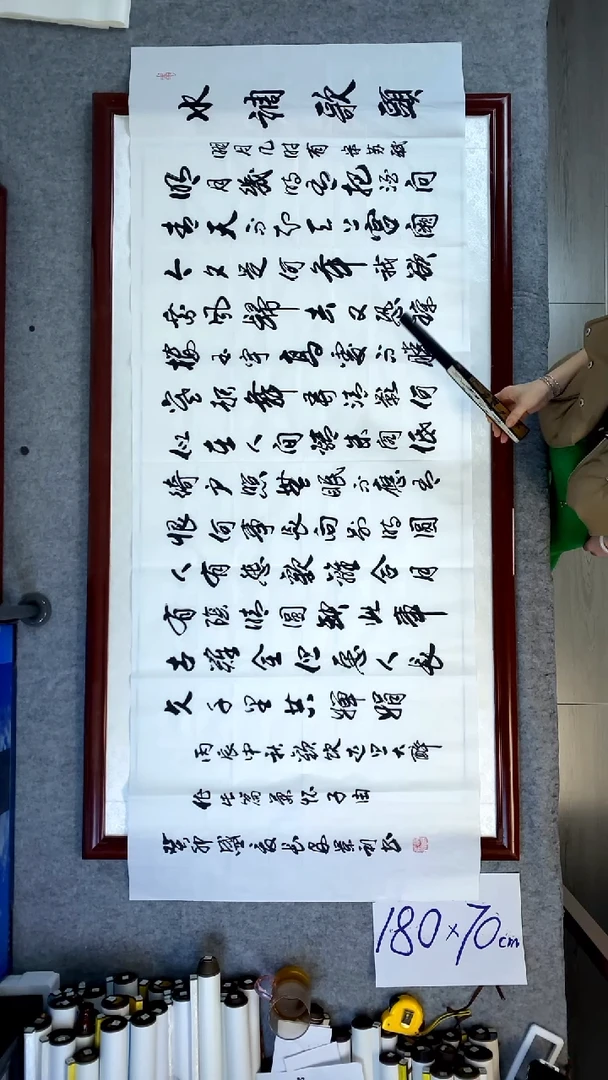 水調歌頭
明月几时有 宋苏轼
明月幾時有把酒问
青天不知天上宫阙
今夕是何年我欲
乘風歸去又恐瓊
樓玉宇高處不勝
寒起舞弄清影何
似在人間轉朱閣低
綺户照無眠不應有
恨何事長向别時圓
人有悲歡離合月
有陰晴圓缺此事
古難全但愿人長
久千里共嬋娟
丙辰中秋歡飲达旦大醉
作此篇兼怀子由
癸卯
180×70cm